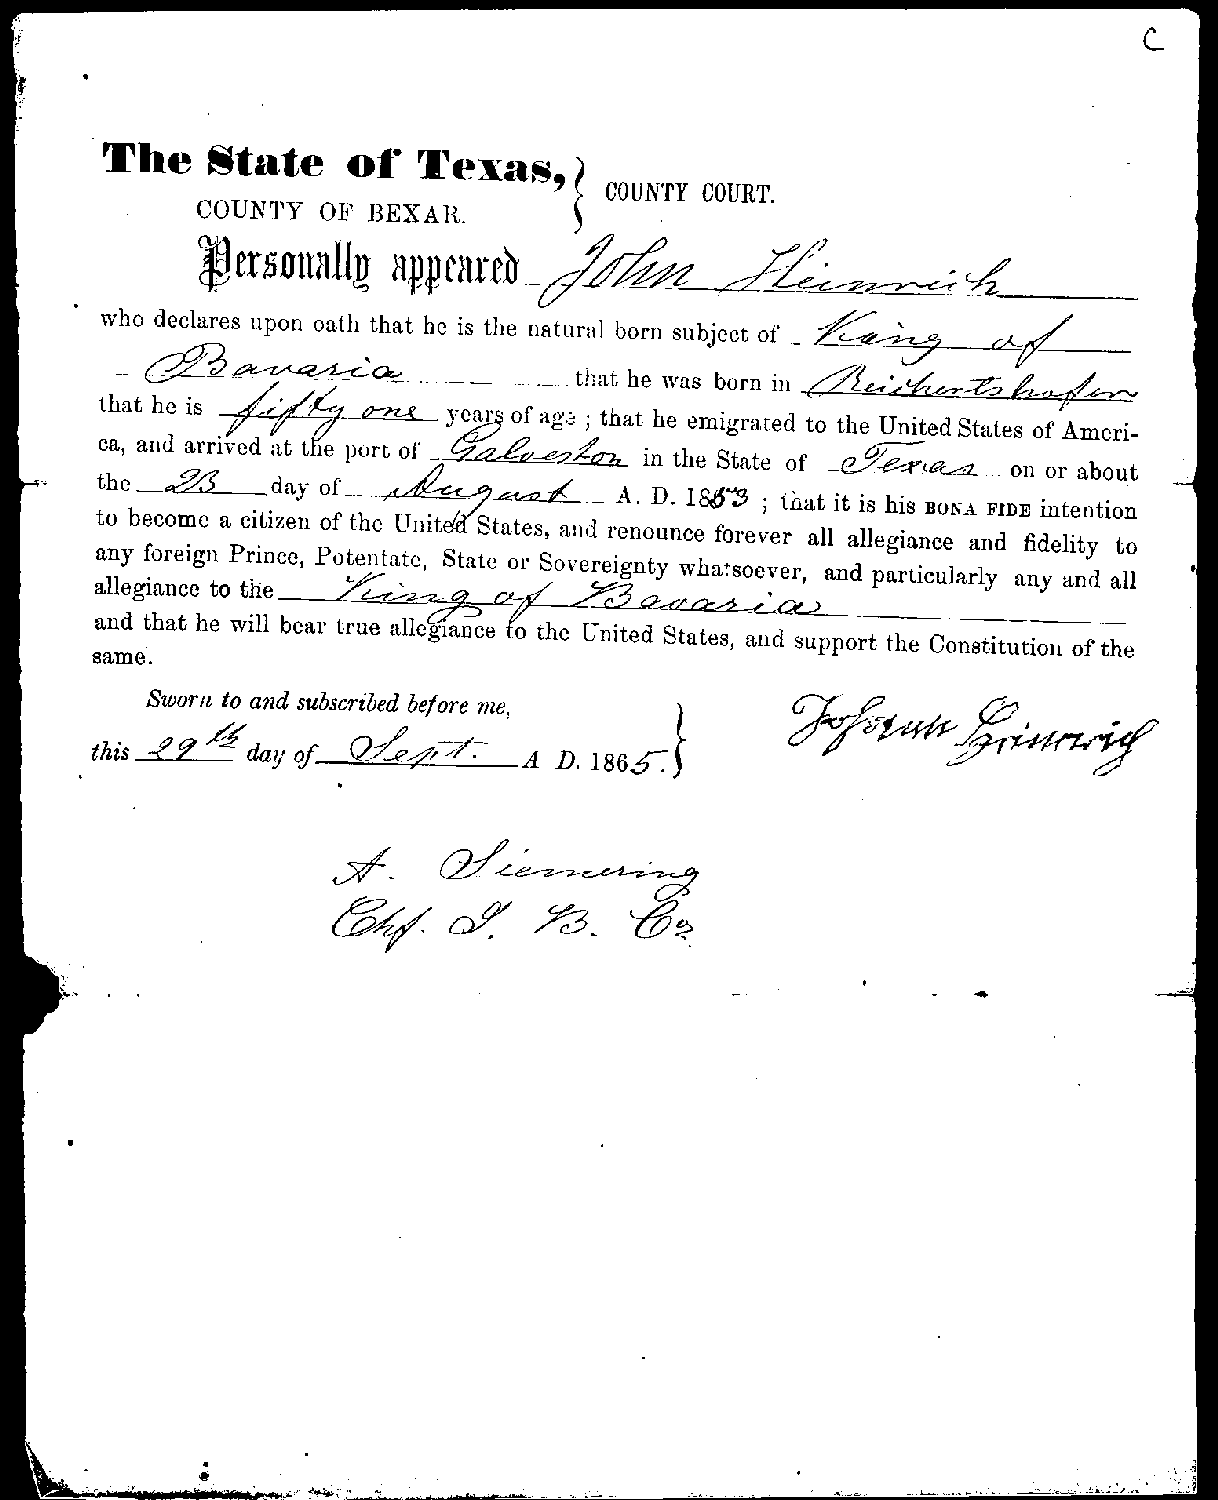 C
The State of Texas, } COUNTY COURT.
COUNTY OF BEXAR.
Personally appeared John Heinrich
who declares upon oath that he is the natural born subject of King of
Bavaria that he was born in Reichertshofen
that he is fifty one years of age ; that he emigrated to the United States of Ameri-
ca, and arrived at the port of Galveston in the State of Texas on or about
the 23 day of August A. D. 1853 ; that it is his BONA FIDE intention
to become a citizen of the United States, and renounce forever all allegiance and fidelity to
any foreign Prince, Potentate, State or Sovereignty whatsoever, and particularly any and all
allegiance to the King of Bavaria
and that he will bear true allegiance to the United States, and support the Constitution of the
same.
Sworn to and subscribed before me,
this 29th day of Sept. A D. 1865. }
Johann Heinrich
A. Siemering
Chf. J. B. Co